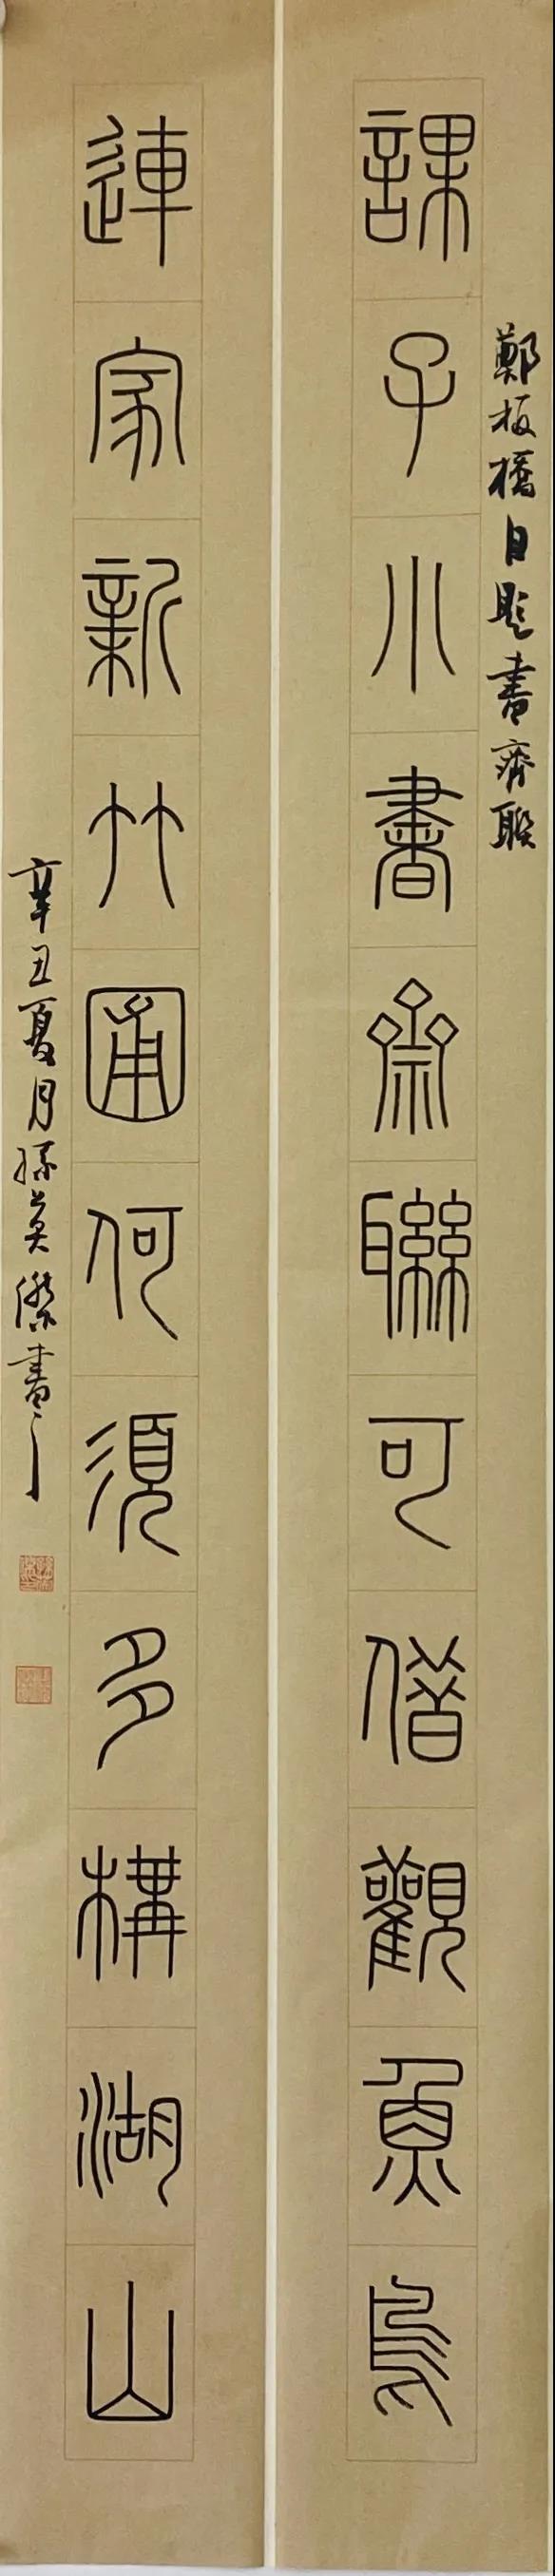 鄭板橋自題書齋聯
課子小書齋聯可借觀魚鳥
連家新竹圃何須多構湖山
辛丑夏月孫英傑書之